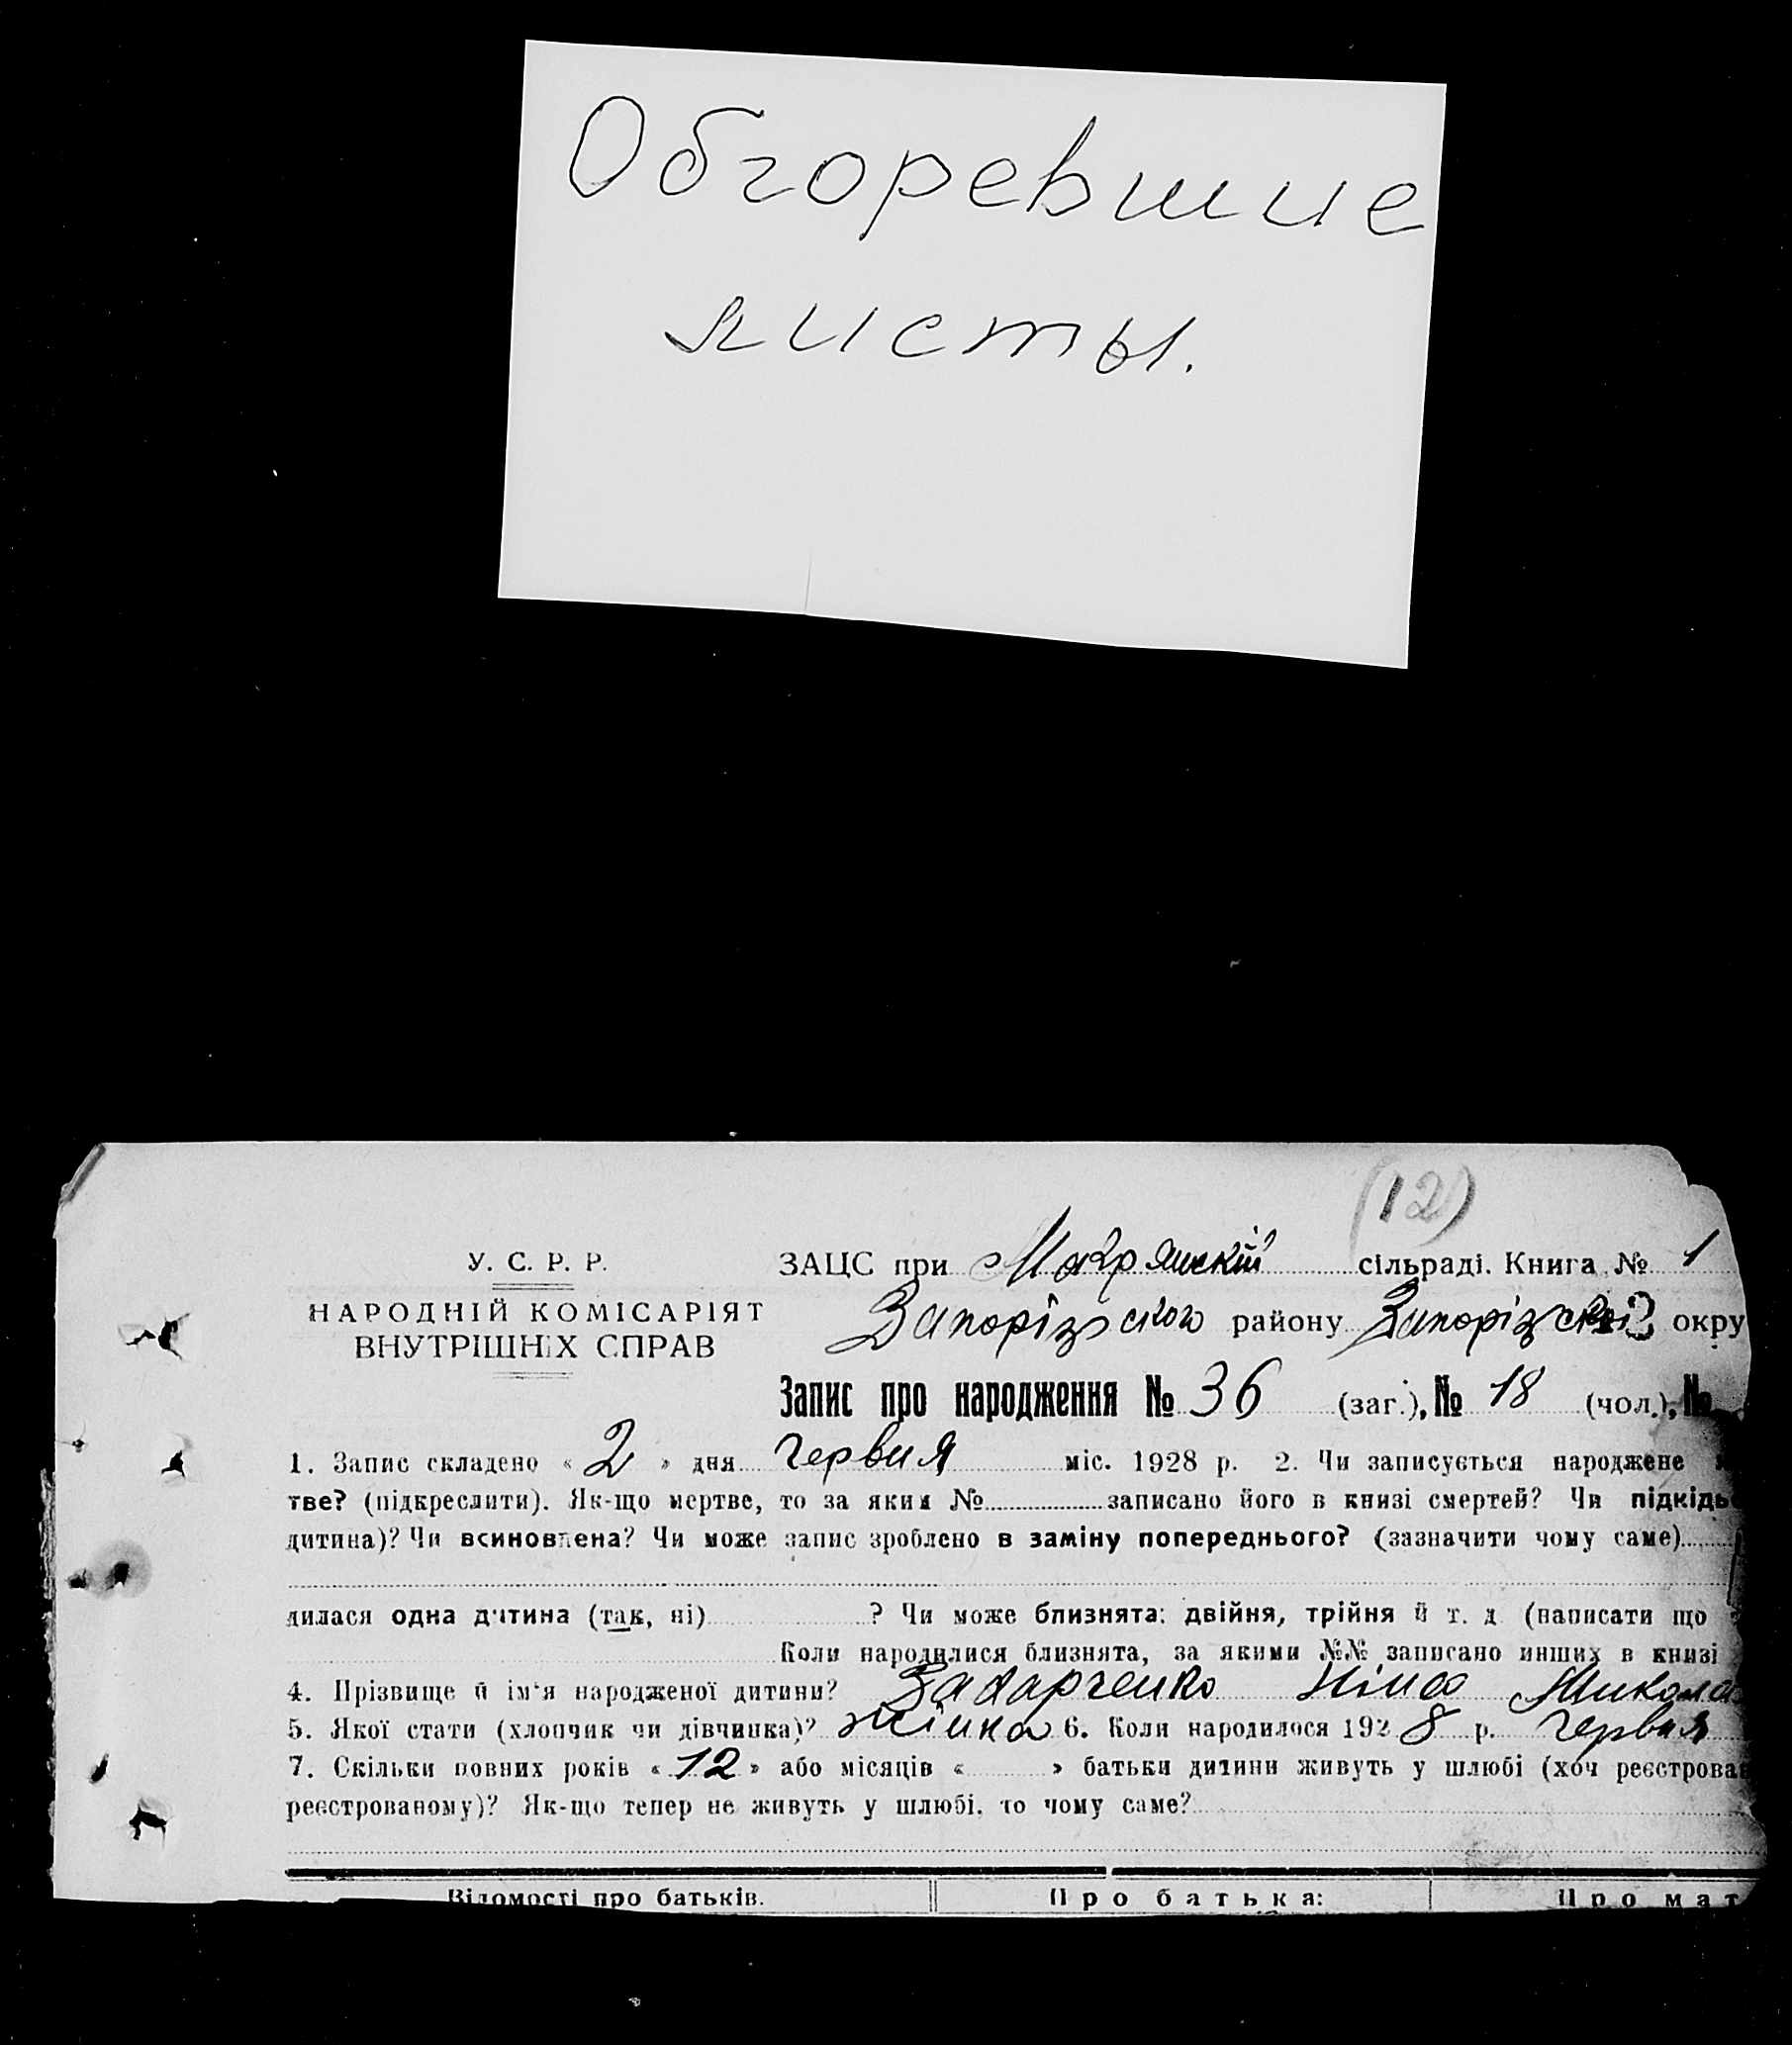 Обгоревшие
листы.
(12)
У. С. Р. Р.
НАРОДНІЙ КОМІСАРІЯТ
ВНУТРІШНІХ СПРАВ
ЗАЦС при Мокрянскій сільраді. Книга № 1
Запорізського району Запорізської окру
Запис про народження № 36 (заг.), № 18 (чол.), №
1. Запис складено « 2 » дня червня міс. 1928 р. 2. Чи записується народжене
тве? (підкреслити). Як-що мертве, то за яким № записано його в книзі смертей? Чи підкідь
дитина)? Чи всиновлена? Чи може запис зроблено в заміну попереднього? (зазначити чому саме)
дилася одна дитина (так, ні) ? Чи може близнята: двійня, трійня й т. д (написати що
Коли народилися близнята, за якими №№ записано инших в книзі
4. Прізвище й ім'я народженої дитини? Захарченко Ніна Микола
5. Якої стати (хлопчик чи дівчинка)? жінка 6. Коли народилося 1928 р. червня
7. Скільки повних років « 12 » або місяців « » батьки дитини живуть у шлюбі (хоч реєстрован
реєстрованому)? Як-що тепер не живуть у шлюбі, то чому саме?
Відомості про батьків. Про батька: Про мат